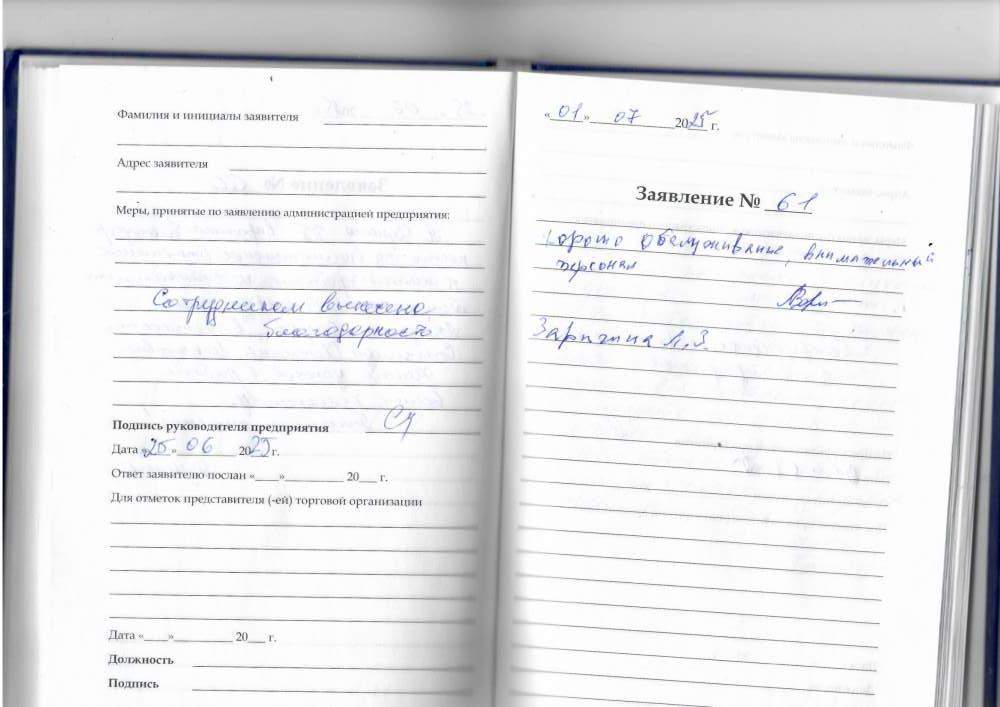 Фамилия и инициалы заявителя
Адрес заявителя
Меры, принятые по заявлению администрацией предприятия:
Сотрудникам вынесена
благодарность
Подпись руководителя предприятия
Дата «25» 06 2025 г.
Ответ заявителю послан «____»__________ 20___ г.
Для отметок представителя (-ей) торговой организации
Дата «____»__________ 20___ г.
Должность
Подпись
«01» 07 2025 г.
Заявление № 61
Хорошо обслуживание, внимательный
персонал
Зарипина Л.З.